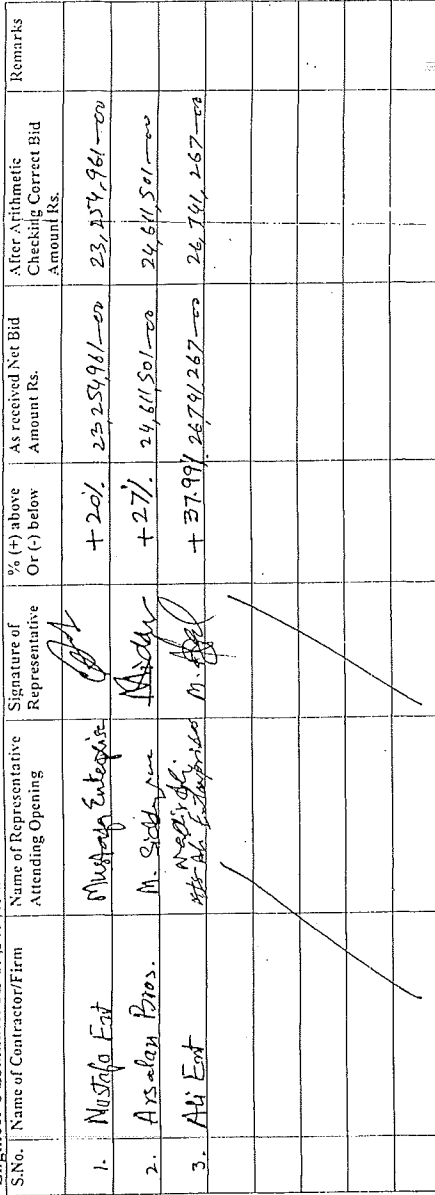 S.No. Name of Contractor/Firm Name of Representative Attending Opening Signature of Representative % (+) above Or (-) below As received Net Bid Amount Rs. After Arithmetic Checking Correct Bid Amount Rs. Remarks
1. Mustafa Ent Mustafa Enterprise +20% 23254961—00 23,254,961—00
2. Arsalan Bros. M. +27% 24,611,501—00 24,611,501—00
3. Ali Ent Ali Enterprises M. +37.99% 26741267—00 26,741,267—00